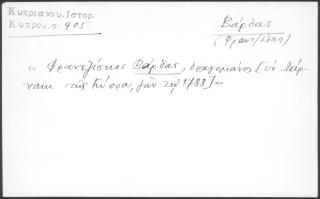 Κυπριανου, Ιστορ.
Κυπρου, σ. 405
Βάρδας
« Φραντζέσκος Βάρδας, δραγομάνος [ἐν Λάρ-
νακι τῆς Κύπρου, 1788]»